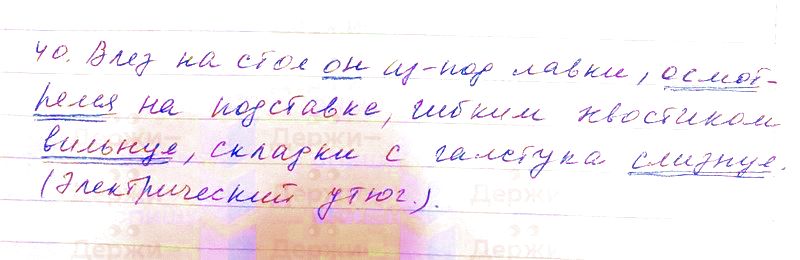 40. Влез на стол он из-под лавки, осмот-
релся на подставке, гибким хвостиком
вильнув, складки с галстука слизнув.
(Электрический утюг.).
Держи-
Держи-
Держи-
Держи-
Держи-